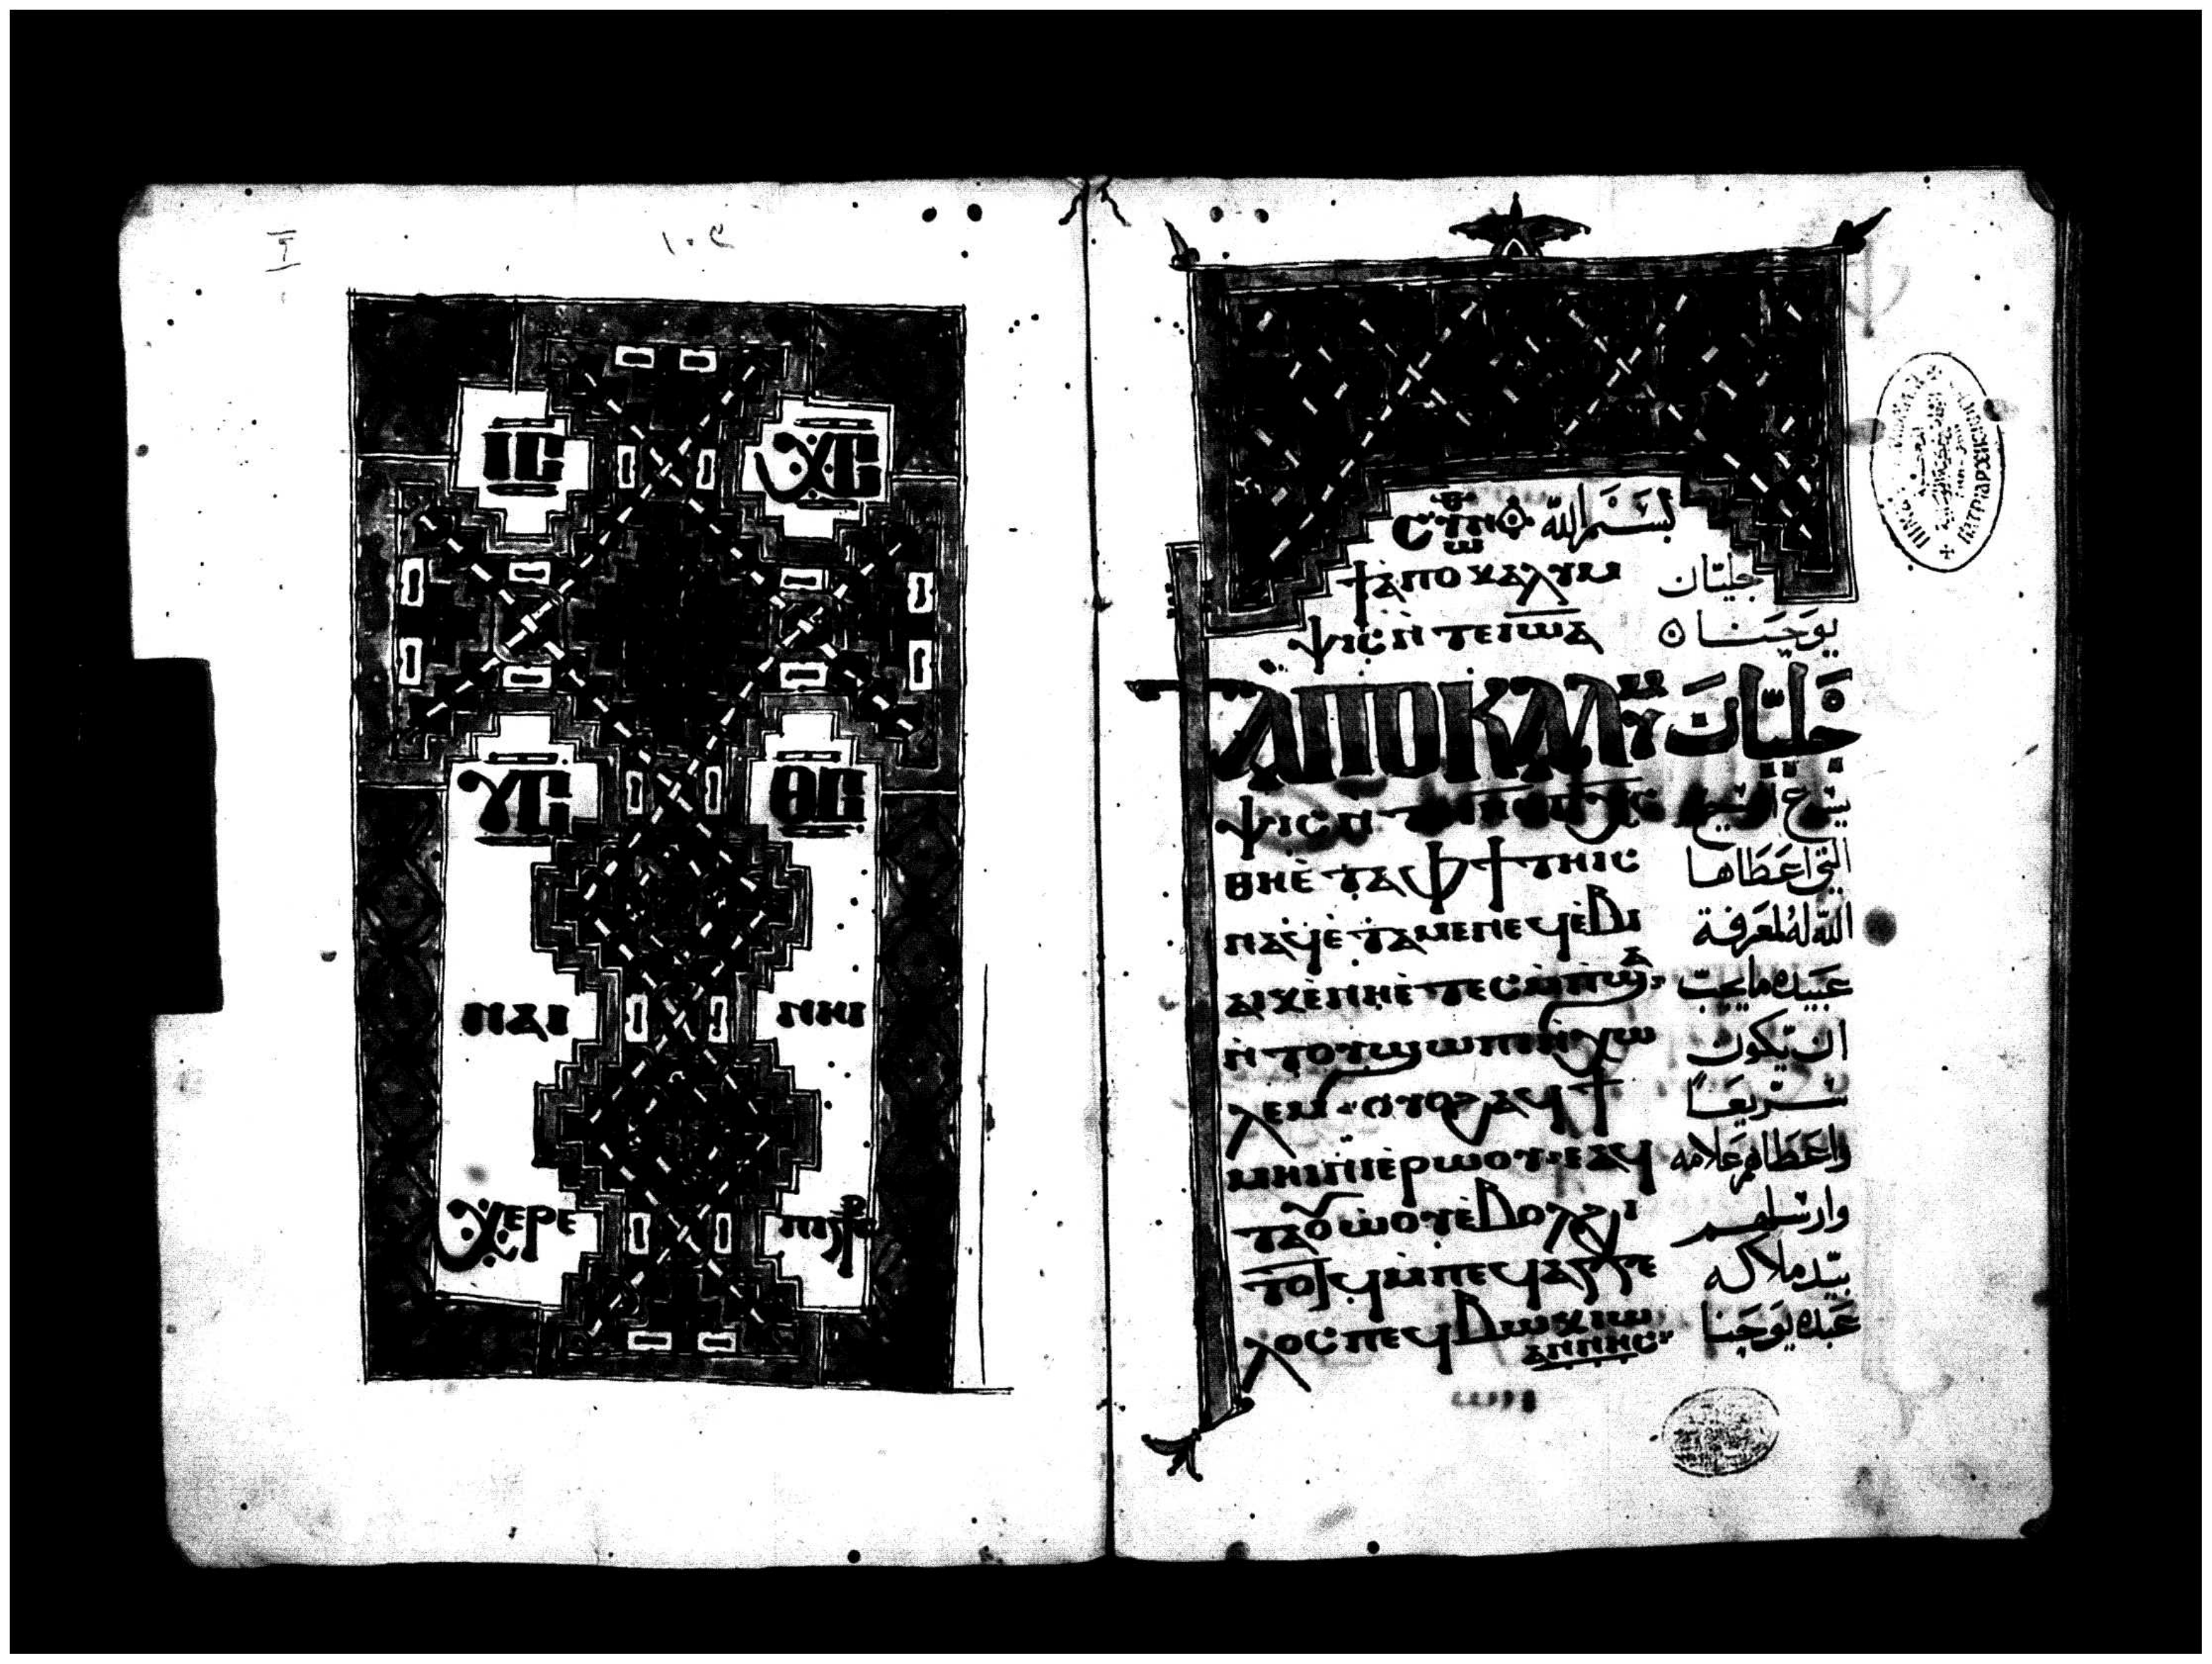 ⲓⲥ ⲭⲥ
ⲩⲥ ⲑⲥ
ⲛⲁⲓ ⲛⲏⲓ
ⲭⲉⲣⲉ
بسم الله
ϯⲁⲡⲟⲕⲁⲗⲩⲙ جليان
ⲯⲓⲥ ⲛ̀ⲧⲉ ⲓⲱⲁ يوحنا
ϯⲁⲡⲟⲕⲁⲗⲩⲙ جليان
ⲯⲓⲥ ⲛ̀ⲧⲉ يسوع المسيح
ⲑⲏⲉ̀ⲧⲁⲫϯ ⲧⲏⲓⲥ التي اعطاها
ⲛⲁϥ ⲉ̀ⲧⲁⲙⲉ ⲛⲉϥⲉ̀ⲃⲓ الله له لمعرفة
ⲁⲓⲕ ⲉ̀ⲛⲏⲉ̀ⲧⲉⲥⲙ̀ⲡϣⲁ عبيده ما يجب
ⲛ̀ⲧⲟⲩϣⲱⲡⲓ ⲛ̀ⲭⲱ ان يكون
ⲗⲉⲙ ⲟⲩⲟϩ ⲁϥϯ سريعا
ⲙⲏⲓⲛⲓ ⲉ̀ⲣⲱⲟⲩ ⲉⲁϥ واعطاهم علامه
ⲧⲁⲟⲩⲱⲟⲩ ⲉ̀ⲃⲟⲗϩⲓ وارسلهم
ⲧⲟⲧϥ ⲙ̀ⲡⲉϥⲁⲅⲅⲉ بيد ملاكه
ⲗⲟⲥ ⲡⲉϥⲃⲱⲕ ⲓⲱ عبده يوحنا
ⲁⲛⲛⲏⲥ